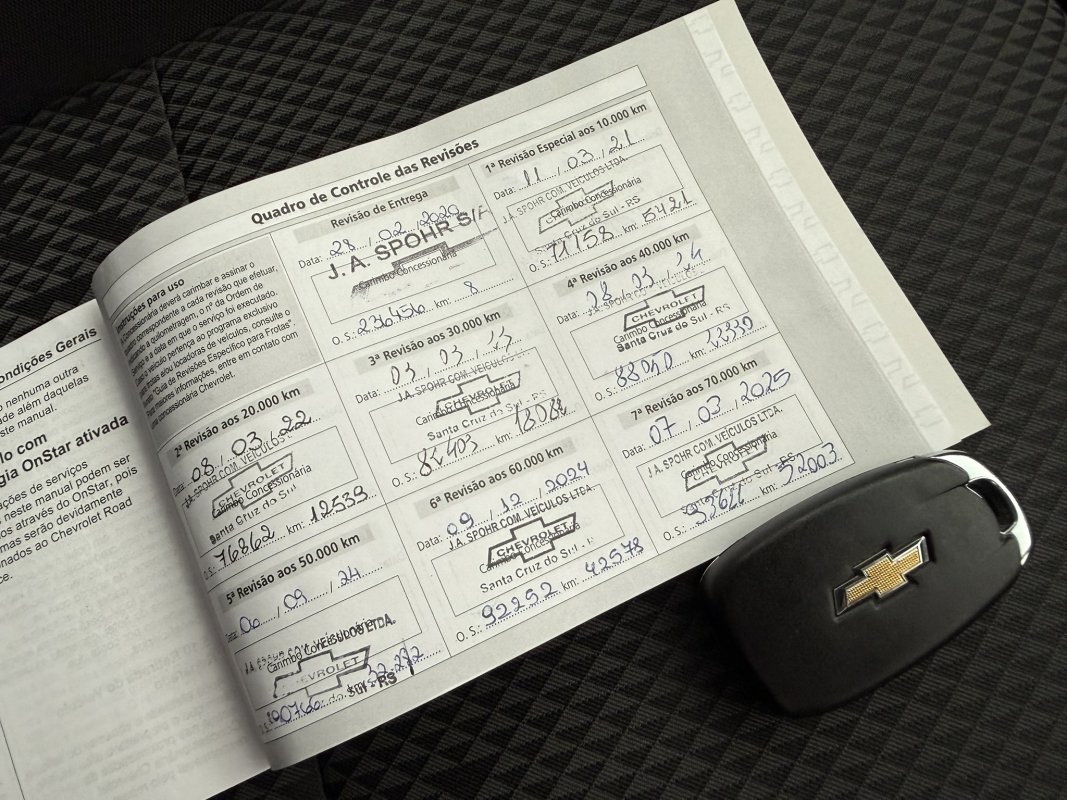 ondições Gerais
o nenhuma outra
dade além daquelas
ste manual.
lo com
gia OnStar ativada
ações de serviços
neste manual podem ser
dos através do OnStar, pois
mas serão devidamente
nados ao Chevrolet Road
ce.
Quadro de Controle das Revisões
Instruções para uso
A concessionária deverá carimbar e assinar o
quadro correspondente a cada revisão que efetuar,
indicando a quilometragem, o nº da Ordem de
Serviço e a data em que o serviço foi executado.
Caso o veículo pertença ao programa exclusivo
para frotas e/ou locadoras de veículos, consulte o
livreto "Guia de Revisões Específico para Frotas".
Para maiores informações, entre em contato com
uma concessionária Chevrolet.
Revisão de Entrega
Data: 28 / 02 / 2020
J. A. SPOHR S/A
Carimbo Concessionária
O. S.: 236456 km: 8
1ª Revisão Especial aos 10.000 km
Data: 11 / 03 / 21
J.A. SPOHR COM. VEÍCULOS LTDA.
Carimbo Concessionária
Santa Cruz do Sul - RS
O. S.: 71158 km: 5421
2ª Revisão aos 20.000 km
Data: 08 / 03 / 22
J.A. SPOHR COM. VEÍCULOS
CHEVROLET
Carimbo Concessionária
Santa Cruz do Sul
O. S.: 76862 km: 12539
3ª Revisão aos 30.000 km
Data: 03
J.A. SPOHR COM. VEÍCULOS
CHEVROLET
Carimbo Concessionária
Santa Cruz do Sul - RS
O. S.: 82403 km:
4ª Revisão aos 40.000 km
Data: 03 / 24
J.A. SPOHR COM. VEÍCULOS
CHEVROLET
Carimbo Concessionária
Santa Cruz do Sul - RS
O. S.: km:
5ª Revisão aos 50.000 km
Data: / 09 / 24
COM. VEÍCULOS LTDA.
Carimbo Concessionária
CHEVROLET
do Sul - RS
km:
6ª Revisão aos 60.000 km
Data: 09 / 12 / 2024
J.A. SPOHR COM. VEÍCULOS LTDA.
CHEVROLET
Carimbo Concessionária
Santa Cruz do Sul
O. S.: 92292 km: 42578
7ª Revisão aos 70.000 km
Data: 07 / 03 / 2025
J.A. SPOHR COM. VEÍCULOS LTDA.
CHEVROLET
Carimbo Concessionária
Santa Cruz do Sul - RS
O. S.: km: 52003